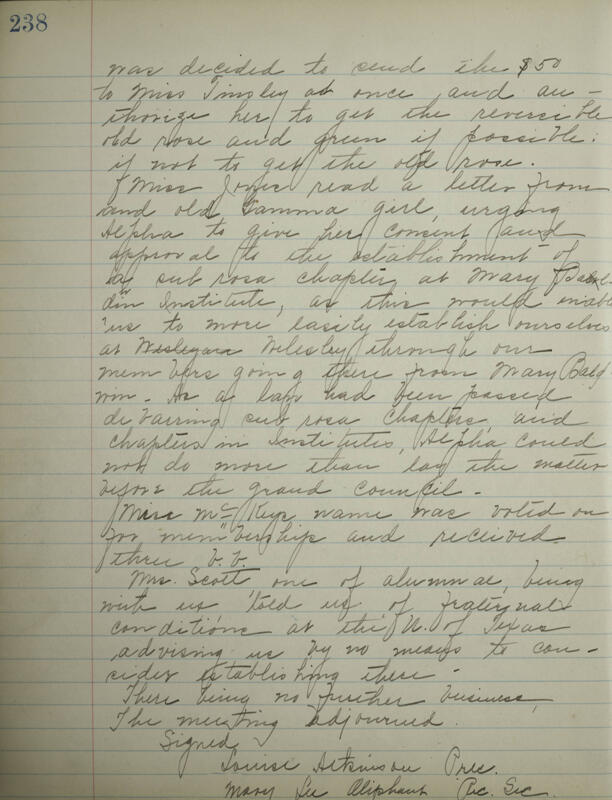 238
was decided to send the $50
to Miss Tinsley at once and au-
thorize her to get the reversible
old rose and green if possible.
if not to get the old rose.
Miss Joyes read a letter from
and old Gamma girl, urging
Alpha to give her consent and
approval to the establishment of
a sub rosa chapter at Mary Bald-
din Institute, as this would enable
us to more easily establish ourselves
at Wesleyan Welesley through our
members going there from Mary Bald
win - As a law had been passed
debarring sub rosa chapters, and
chapters in Institutes, Alpha could
not do more than lay the matter
before the grand council -
Miss McKeys name was voted on
for membership and received
three b. b.
Mrs. Scott one of alumnae, being
with us told us of fraternal
conditions at the U. of Texas
advising us by no means to con-
sider establishing there -
There being no further business,
The meeting adjourned.
Signed
Louise Atkinson Pres.
Mary Lu Aliphant Rec. Sec.